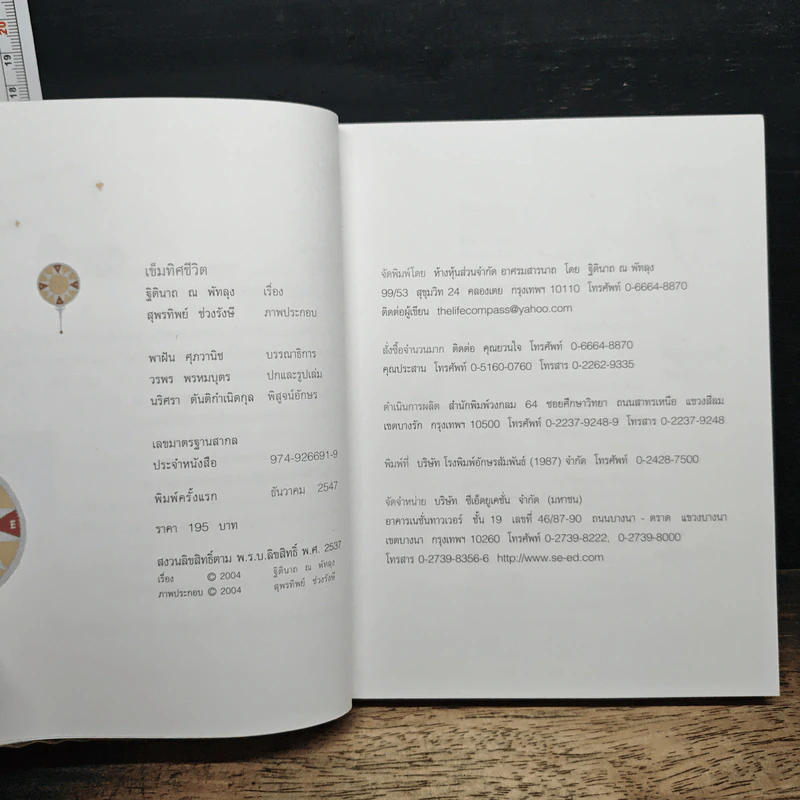 20
19
18
เข็มทิศชีวิต
ฐิตินาถ ณ พัทลุง เรื่อง
สุพรทิพย์ ช่วงรังษี ภาพประกอบ
พาฝัน ศุภวานิช บรรณาธิการ
วรพร พรหมบุตร ปกและรูปเล่ม
นริศรา ตันติกำเนิดกุล พิสูจน์อักษร
เลขมาตรฐานสากล
ประจำหนังสือ 974-926691-9
พิมพ์ครั้งแรก ธันวาคม 2547
ราคา 195 บาท
สงวนลิขสิทธิ์ตาม พ.ร.บ.ลิขสิทธิ์ พ.ศ. 2537
เรื่อง © 2004 ฐิตินาถ ณ พัทลุง
ภาพประกอบ © 2004 สุพรทิพย์ ช่วงรังษี
E
จัดพิมพ์โดย ห้างหุ้นส่วนจำกัด อาศรมสารนาถ โดย ฐิตินาถ ณ พัทลุง
99/53 สุขุมวิท 24 คลองเตย กรุงเทพฯ 10110 โทรศัพท์ 0-6664-8870
ติดต่อผู้เขียน thelifecompass@yahoo.com
สั่งซื้อจำนวนมาก ติดต่อ คุณยวนใจ โทรศัพท์ 0-6664-8870
คุณประสาน โทรศัพท์ 0-5160-0760 โทรสาร 0-2262-9335
ดำเนินการผลิต สำนักพิมพ์วงกลม 64 ซอยศึกษาวิทยา ถนนสาทรเหนือ แขวงสีลม
เขตบางรัก กรุงเทพฯ 10500 โทรศัพท์ 0-2237-9248-9 โทรสาร 0-2237-9248
พิมพ์ที่ บริษัท โรงพิมพ์อักษรสัมพันธ์ (1987) จำกัด โทรศัพท์ 0-2428-7500
จัดจำหน่าย บริษัท ซีเอ็ดยูเคชั่น จำกัด (มหาชน)
อาคารเนชั่นทาวเวอร์ ชั้น 19 เลขที่ 46/87-90 ถนนบางนา - ตราด แขวงบางนา
เขตบางนา กรุงเทพฯ 10260 โทรศัพท์ 0-2739-8222, 0-2739-8000
โทรสาร 0-2739-8356-6 http://www.se-ed.com